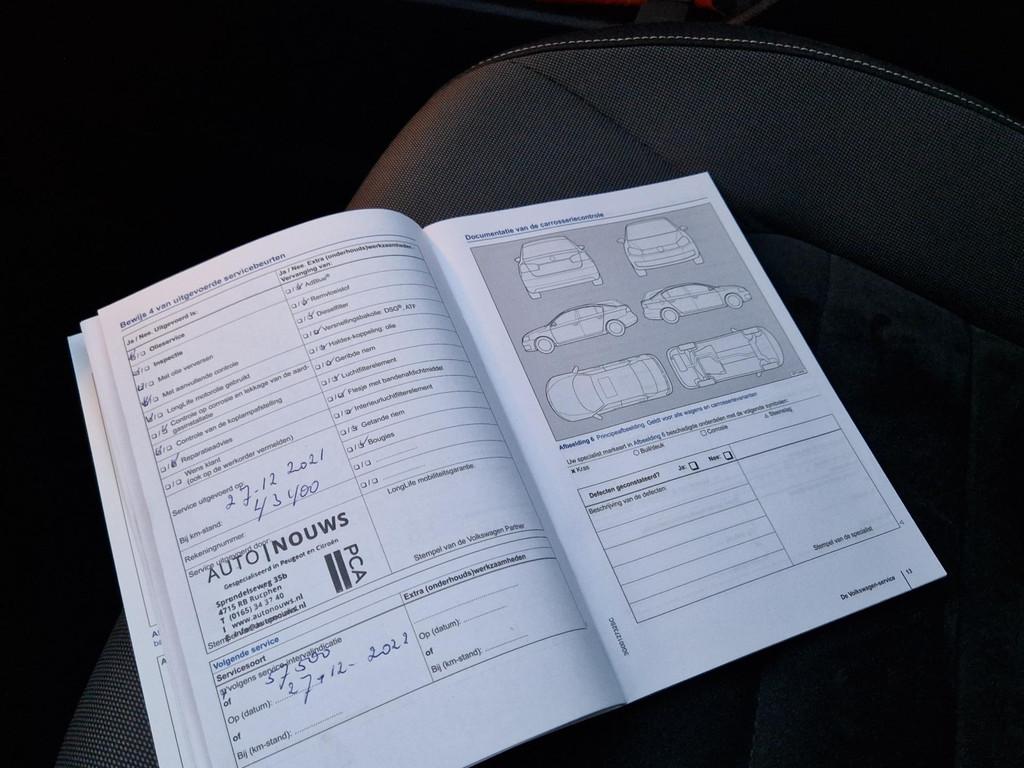 Bewijs 4 van uitgevoerde servicebeurten
Ja / Nee. Uitgevoerd is:
Olieservice
Inspectie
Met olie verversen
Met aanvullende controle
LongLife motorolie gebruikt
Controle op corrosie en lekkage van de aard-
gasinstallatie
Controle van de koplampafstelling
Reparatieadvies
Wens klant
(ook op de werkorder vermelden)
Service uitgevoerd op:
27-12 2021
Bij km-stand:
43400
Rekeningnummer:
Service uitgevoerd door:
AUTO NOUWS
Gespecialiseerd in Peugeot en Citroën
PCA
Sprundelseweg 35b
4715 RB Rucphen
T (0165) 34 37 40
I www.autonouws.nl
E info@autonouws.nl
Ja / Nee. Extra (onderhouds)werkzaamheden.
Vervanging van:
AdBlue®
Remvloeistof
Dieselfilter
Versnellingsbakolie: DSG®, ATF
Haldex-koppeling: olie
Geribde riem
Luchtfilterelement
Flesje met bandenafdichtmiddel
Interieurluchtfilterelement
Getande riem
Bougies
LongLife mobiliteitsgarantie.
Stempel van de Volkswagen Partner
Volgende service
Servicesoort
volgens service-intervalindicatie
of
Op (datum):
57500
27-12-2022
of
Bij (km-stand):
Extra (onderhouds)werkzaamheden
Op (datum):
of
Bij (km-stand):
Documentatie van de carrosseriecontrole
Afbeelding 6 Principeafbeelding. Geldt voor alle wagens en carrosserievarianten
Uw specialist markeert in Afbeelding 6 beschadigde onderdelen met de volgende symbolen:
x Kras
○ Buil/deuk
□ Corrosie
△ Steenslag
Defecten geconstateerd? Ja: Nee:
Beschrijving van de defecten:
Stempel van de specialist
De Volkswagen-service 13